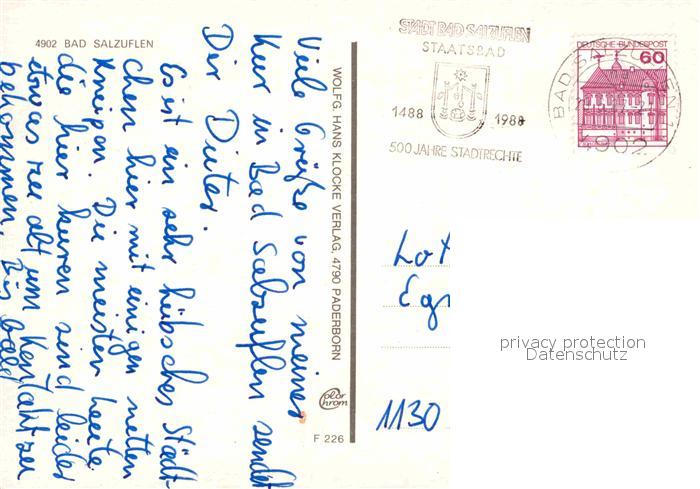 4902 BAD SALZUFLEN
Viele Grüße von meiner
Kur in Bad Salzuflen sendet
Dir Dieter.
Es ist ein sehr hübsches Städt-
chen hier mit einigen netten
Kneipen. Die meisten Leute
die hier kuren sind leider
etwas zu alt um Kontakt zu
bekommen. Bis bald
WOLFG. HANS KLOCKE VERLAG, 4790 PADERBORN
Color
chrom
F 226
STADT BAD SALZUFLEN
STAATSBAD
1488 1988
500 JAHRE STADTRECHTE
BAD SALZUFLEN 1
4902
DEUTSCHE BUNDESPOST
60
Lot
Eg
1130
privacy protection
Datenschutz